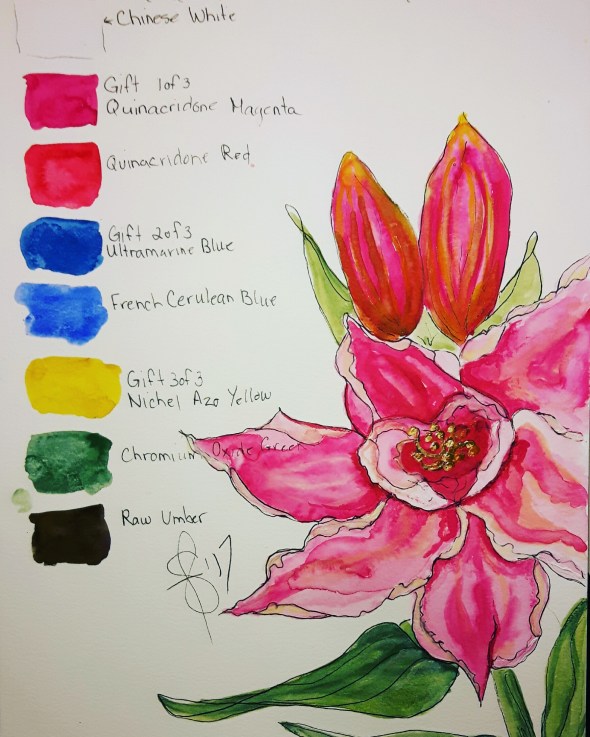 Chinese White
Gift 1of3
Quinacridone Magenta
Quinacridone Red.
Gift 2of3
Ultramarine Blue
French Cerulean Blue
Gift 3of3
Nickel Azo Yellow
Chromium Oxide Green
Raw Umber
'17